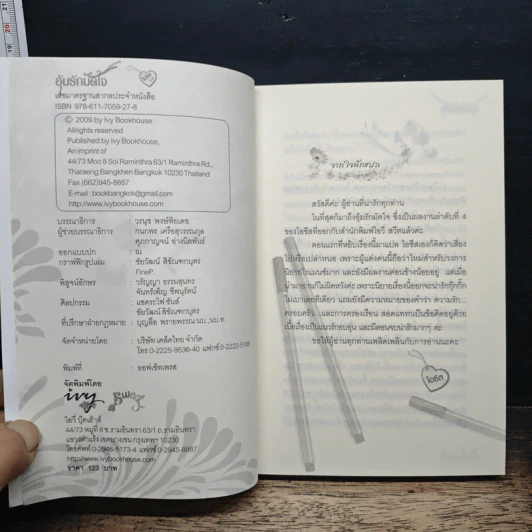 อุ้มรักมัดใจ
เลขมาตรฐานสากลประจำหนังสือ
ISBN 978-611-7059-27-8
© 2009 by Ivy Bookhouse
Allrights reserved
Published by Ivy Bookhouse,
An imprint of
44/73 Moo 8 Soi Raminthra 63/1 Raminthra Rd.,
Tharaeng Bangkhen Bangkok 10230 Thailand
Fax (662)945-8887
E-mail : bookbangkok@gmail.com
http://www.ivybookhouse.com
บรรณาธิการ : วรนุช พงษ์พิยเดช
ผู้ช่วยบรรณาธิการ : กนกพร เครือสุวรรณกุล
ศุภกาญจน์ อ่างนิลพันธ์
ออกแบบปก : ณ
กราฟฟิกรูปเล่ม : ชัยวัฒน์ สิขัณฑกบุตร
FineP.
พิสูจน์อักษร : วรัญญา ธรรมสุนทร
จันทร์เพ็ญ ชีพนุรัตน์
ศิลปกรรม : แชดระไฟ ขันส์
ชัยวัฒน์ สิขัณฑกบุตร
ที่ปรึกษาฝ่ายกฎหมาย : บุญลือ พรายพรรณ นบ.,นบ.ท.
จัดจำหน่ายโดย : บริษัท เคล็ดไทย จำกัด
โทร.0-2225-9536-40 แฟกซ์ 0-2222-5188
พิมพ์ที่ : ออฟเซ็ทเพรส
จัดพิมพ์โดย
ivy
Sweet
ไอวี่ บุ๊คเฮ้าส์
44/73 หมู่ที่ 8 ซ.รามอินทรา 63/1 ถ.รามอินทรา
แขวงท่าแร้ง เขตบางเขน กรุงเทพฯ 10230
โทรศัพท์ 0-2946-5173-4 แฟกซ์ 0-2945-8887
http://www.ivybookhouse.com
ราคา 123 บาท
จากใจนักเขียน
สวัสดีค่ะ ผู้อ่านที่น่ารักทุกท่าน
ในที่สุดก็มาถึงอุ้มรักมัดใจ ซึ่งเป็นผลงานลำดับที่ 4
ของไอซิสที่ออกกับสำนักพิมพ์ไอวี่ สวีทแล้วค่ะ
ตอนแรกที่หยิบเรื่องนี้มาแปล ไอซิสเองก็คิดว่าเสี่ยง
ไปหรือเปล่าหนอ เพราะผู้แต่งคนนี้ถือว่าใหม่สำหรับวงการ
นิยายโรแมนซ์มาก และยังมีผลงานค่อนข้างน้อยอยู่ แต่เมื่อ
นำมาอ่านก็ไม่ผิดหวังค่ะ เพราะนิยายเรื่องนี้ออกจะน่ารักกุ๊กกิ๊ก
ไม่เบาเลยทีเดียว แถมยังมีความหมายของคำว่า ความรัก...
ครอบครัว... และการครองเรือน สอดแทรกเป็นข้อคิดอยู่ด้วย
เนื้อเรื่องเป็นแนวรักอบอุ่น และมีตอนจบน่ารักมากๆ ค่ะ
ขอให้ผู้อ่านทุกท่านเพลิดเพลินกับการอ่านนะคะ
ไอซิส